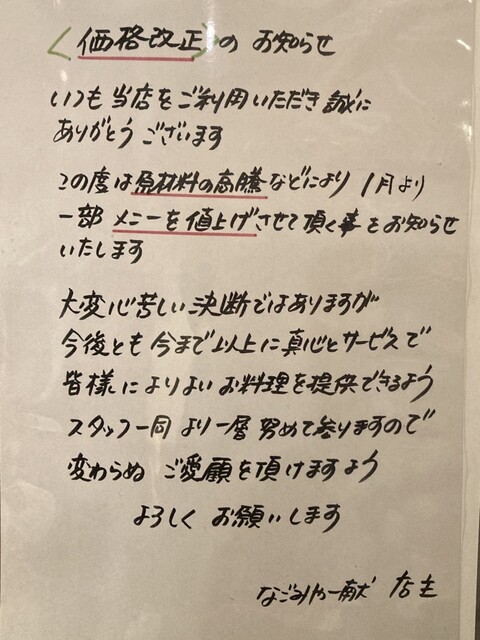 〈価格改正〉の お知らせ
いつも 当店を ご利用いただき 誠に
ありがとう ございます
この度は 原材料の高騰などにより 1月より
一部 メニーを値上げさせて頂く事をお知らせ
いたします
大変心苦しい決断ではありますが
今後とも 今まで以上に真心とサービスで
皆様により よい お料理を提供できるよう
スタッフ一同 より一層 努めて参りますので
変わらぬ ご愛顧を頂けますよう
よろしく お願いします
なごみや一献 店主